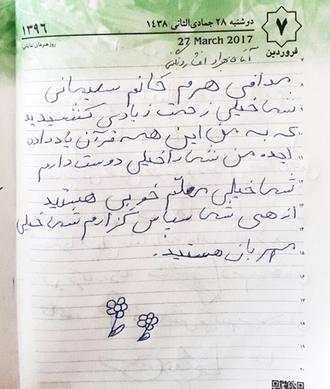 ۱۳۹۶
دوشنبه ۲۸ جمادی‌الثانی ۱۴۳۸
۷
روز هنرهای نمایشی
27 March 2017
فروردین
مدافی هرم خانم سلیمانی
شما خیلی زحمت زیادی کشیدید
که به من این همه قرآن یاد داده
ایده من شما را خیلی دوست دارم
شما خیلی معلم خوبی هستید
از همی شما سپاس گزارم شما خیلی
مهربان هستید.